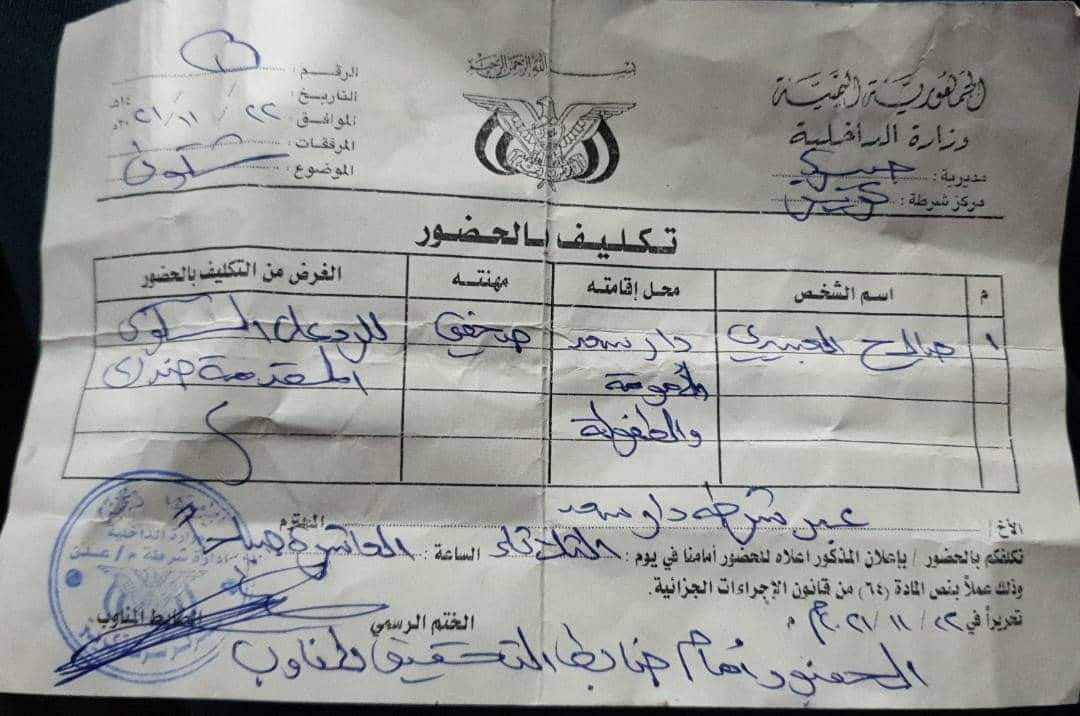 بسم الله الرحمن الرحيم
الجمهورية اليمنية
وزارة الداخلية
مديرية :
مركز شرطة :
الرقم :
التاريخ : / / ١٤هـ
الموافق : ٢٢ / ١١ / ٢٠٢١م
المرفقات :
الموضوع : شكوى
تكليف بالحضور
م اسم الشخص محل إقامته مهنته الغرض من التكليف بالحضور
١ صالح العبيدي دار سعد صحفي للرد على الشكوى
الأمومة المقدمة ضدك
والطفولة
الأخ / عبر شرطة دار سعد المحترم
نكلفكم بالحضور / بإعلان المذكور اعلاه للحضور أمامنا في يوم : الثلاثاء الساعة : العاشرة صباحا
وذلك عملاً بنص المادة (٦٤) من قانون الإجراءات الجزائية.
تحريراً في ٢٢ / ١١ / ٢٠٢١م
الختم الرسمي الضابط المناوب
الحضور أمام ضابط التحقيق
وزارة الداخلية
ادارة شرطة م / عدن